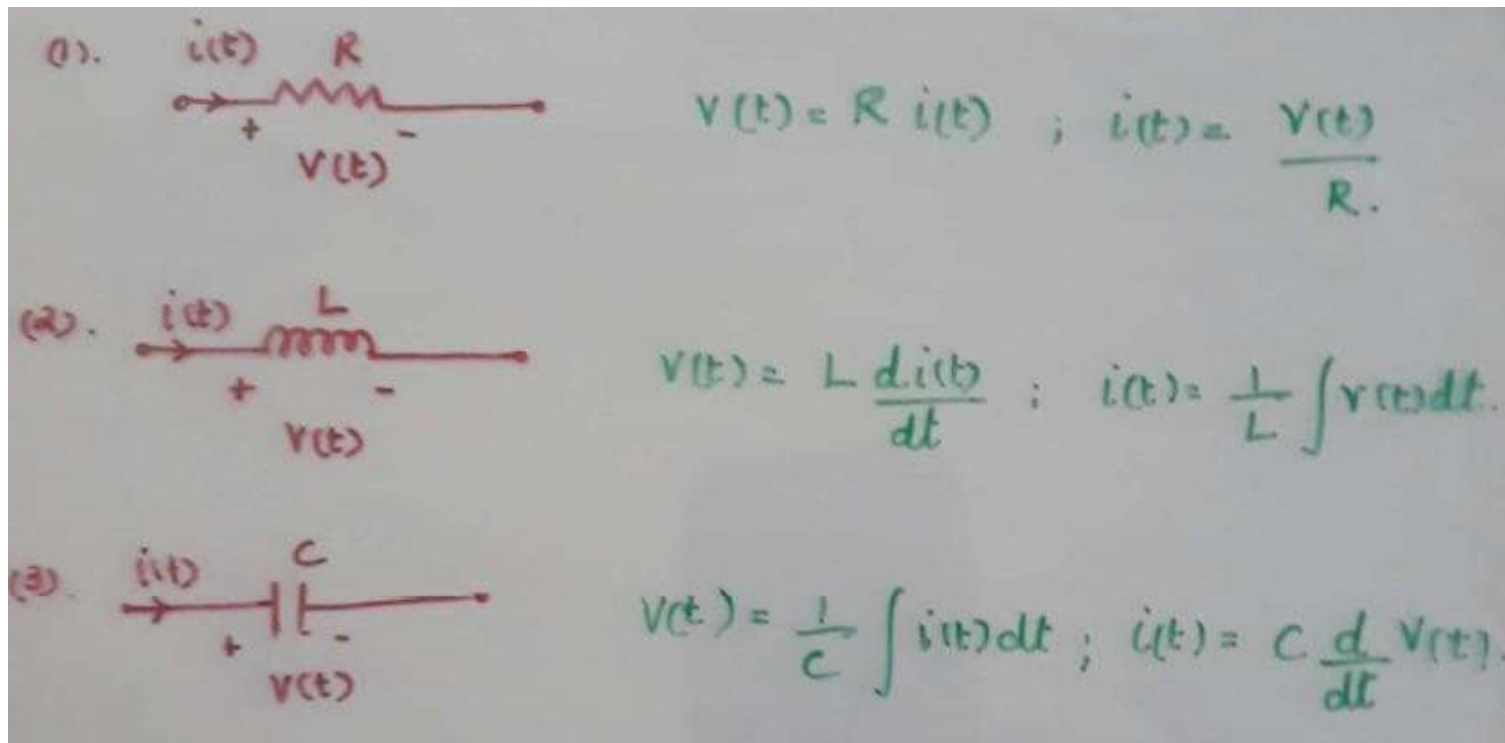 (1). i(t) R
+ -
V(t)
V(t) = R i(t) ; i(t) = V(t) / R.
(2). i(t) L
+ -
V(t)
V(t) = L d.i(t) / dt ; i(t) = 1/L ∫ v(t) dt.
(3). i(t) C
+ -
V(t)
V(t) = 1/C ∫ i(t) dt ; i(t) = C d/dt V(t).